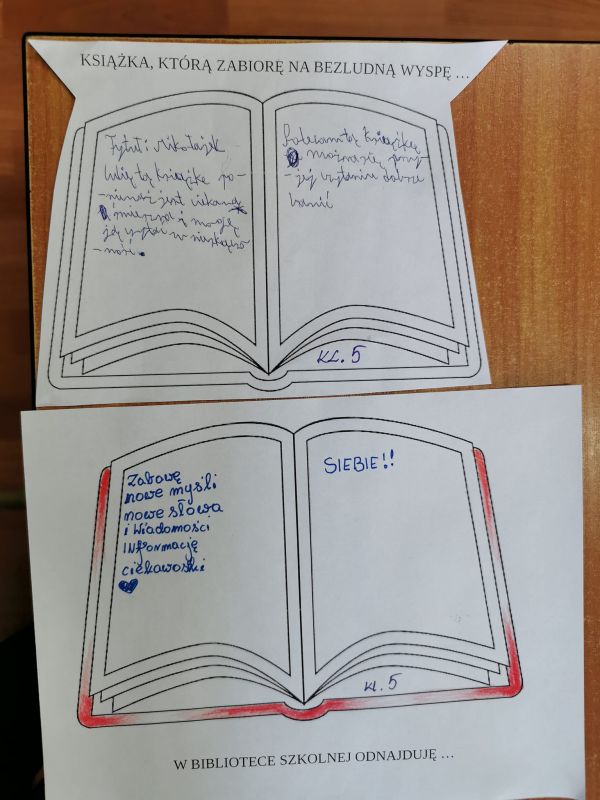 KSIĄŻKA, KTÓRĄ ZABIORĘ NA BEZLUDNĄ WYSPĘ ...
Tytuł: Mikołajek
lubię tą książkę po-
-nieważ jest ciekawa
i śmieszna i mogę
ją czytać w nieskończo
-ność.
Polecam tą książkę
można się przy
-jej czytaniu dobrze
bawić
KL. 5
Zabawę
nowe myśli
nowe słowa
i Wiadomości
INformację
ciekawoski
SIEBIE!!
kl. 5
W BIBLIOTECE SZKOLNEJ ODNAJDUJĘ ...